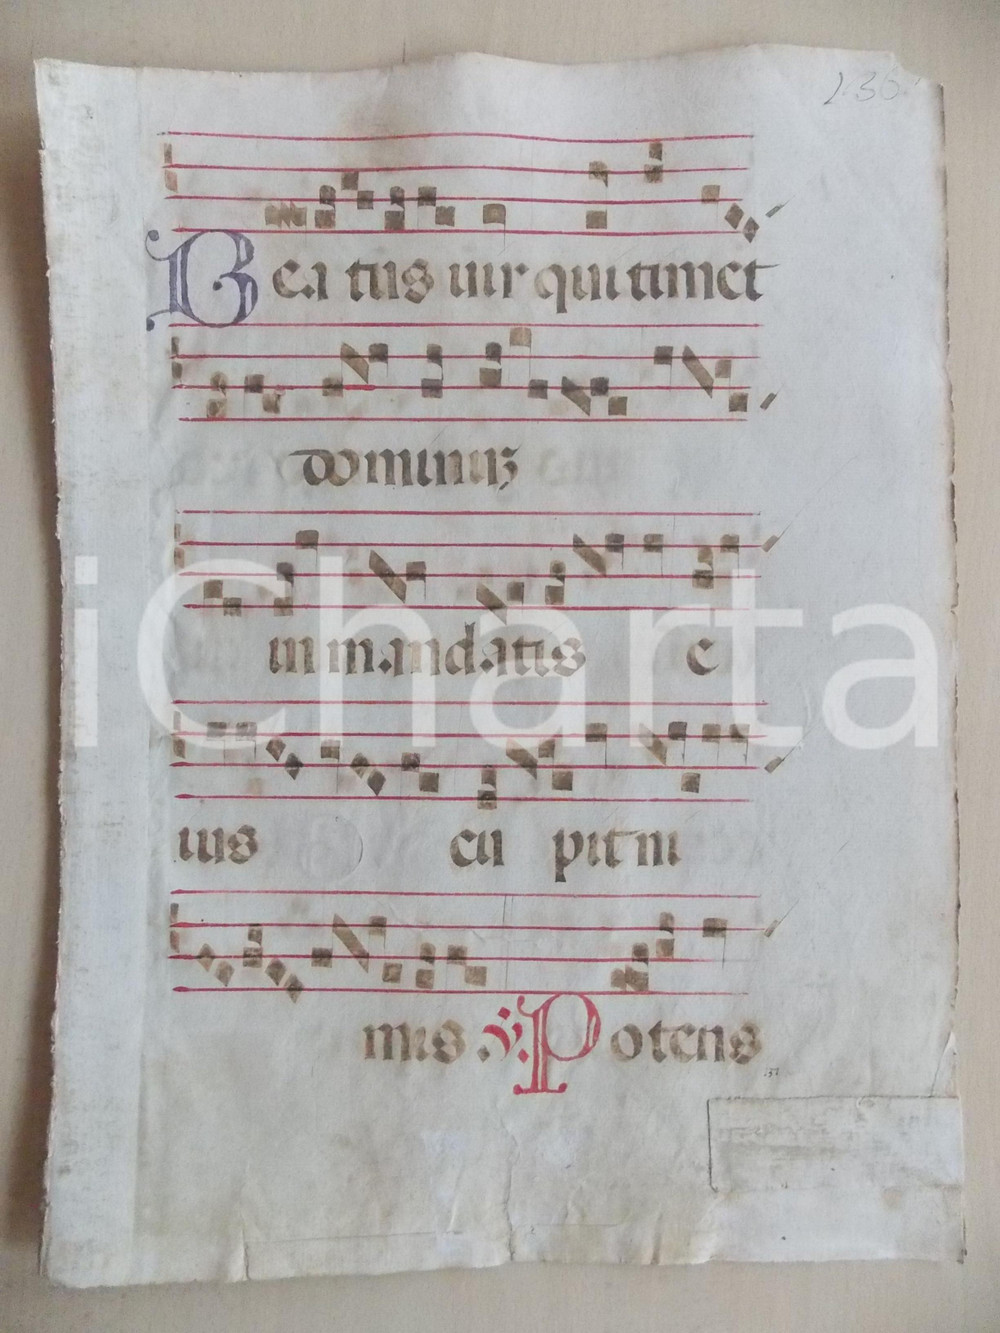 130
Bea tus uir qui timet
dominuz
in mandatis e
ius cu pit ni
mis ℣. Potens
iCharta